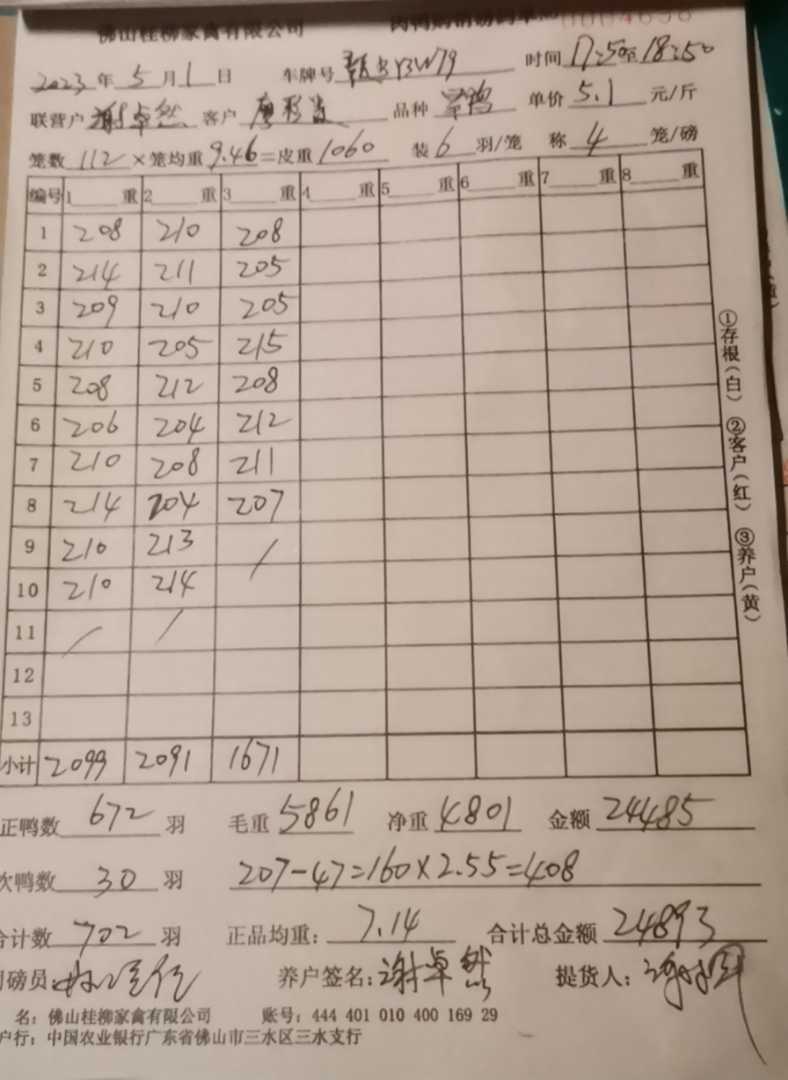 佛山桂柳家禽有限公司 肉鸭购销磅码单 0004698
2023年5月1日 车牌号 时间17:50至18:50
联营户 谢卓然 客户 品种 单价5.1元/斤
笼数112×笼均重9.46=皮重1060 装6羽/笼 称4笼/磅
编号 1 重 2 重 3 重 4 重 5 重 6 重 7 重 8 重
1 208 210 208
2 214 211 205
3 209 210 205
4 210 205 215
5 208 212 208
6 206 204 212
7 210 208 211
8 214 204 207
9 210 213 /
10 210 214
11 / /
12
13
小计 2099 2091 1671
正鸭数 672 羽 毛重 5861 净重 4801 金额 24485
次鸭数 30 羽 207-47=160×2.55=408
合计数 702 羽 正品均重: 7.14 合计总金额 24893
司磅员: 养户签名: 谢卓然 提货人:
名: 佛山桂柳家禽有限公司 账号: 444 401 010 400 169 29
户行: 中国农业银行广东省佛山市三水区三水支行
①存根(白) ②客户(红) ③养户(黄)